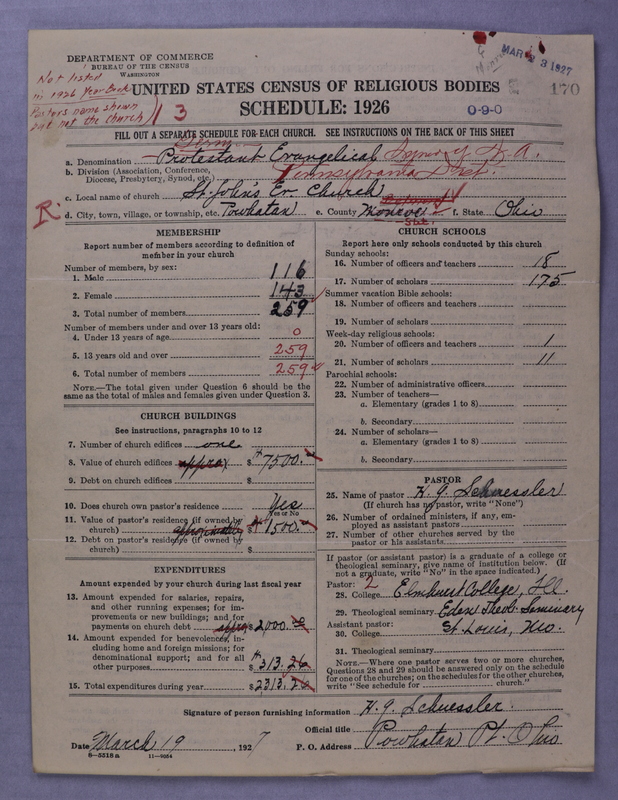 DEPARTMENT OF COMMERCE
BUREAU OF THE CENSUS
WASHINGTON
MAR 23 1927
Not listed
in 1926 Year Book
Pastors name shown
but not the church
UNITED STATES CENSUS OF RELIGIOUS BODIES
170
1 3
SCHEDULE: 1926
0-9-0
FILL OUT A SEPARATE SCHEDULE FOR EACH CHURCH. SEE INSTRUCTIONS ON THE BACK OF THIS SHEET
a. Denomination Protestant Evangelical Synod of N. A.
b. Division (Association, Conference, Diocese, Presbytery, Synod, etc.) Pennsylvania Dist.
c. Local name of church St. John's Ev. Church
R
d. City, town, village, or township, etc. Powhatan e. County Monroe f. State Ohio
MEMBERSHIP
Report number of members according to definition of
member in your church
Number of members, by sex:
1. Male 116
2. Female 143
3. Total number of members 259
Number of members under and over 13 years old:
4. Under 13 years of age 0
5. 13 years old and over 259
6. Total number of members 259
NOTE.—The total given under Question 6 should be the
same as the total of males and females given under Question 3.
CHURCH BUILDINGS
See instructions, paragraphs 10 to 12
7. Number of church edifices one
8. Value of church edifices approx $ 7500.
9. Debt on church edifices $
10. Does church own pastor's residence Yes
Yes or No
11. Value of pastor's residence (if owned by
church) approximately $ 1500.
12. Debt on pastor's residence (if owned by
church) $
EXPENDITURES
Amount expended by your church during last fiscal year
13. Amount expended for salaries, repairs,
and other running expenses; for im-
provements or new buildings; and for
payments on church debt approx $ 2,000.00
14. Amount expended for benevolences, in-
cluding home and foreign missions; for
denominational support; and for all
other purposes $ 313.26
15. Total expenditures during year $ 2313.26
CHURCH SCHOOLS
Report here only schools conducted by this church
Sunday schools:
16. Number of officers and teachers 18
17. Number of scholars 175
Summer vacation Bible schools:
18. Number of officers and teachers
19. Number of scholars
Week-day religious schools:
20. Number of officers and teachers 1
21. Number of scholars 11
Parochial schools:
22. Number of administrative officers
23. Number of teachers—
a. Elementary (grades 1 to 8)
b. Secondary
24. Number of scholars—
a. Elementary (grades 1 to 8)
b. Secondary
PASTOR
25. Name of pastor H. G. Schuessler
(If church has no pastor, write "None")
26. Number of ordained ministers, if any, em-
ployed as assistant pastors
27. Number of other churches served by the
pastor or his assistants
If pastor (or assistant pastor) is a graduate of a college or
theological seminary, give name of institution below. (If
not a graduate, write "No" in the space indicated.)
Pastor: 2
28. College Elmhurst College, Ill.
29. Theological seminary Eden Theol. Seminary
Assistant pastor:
30. College St. Louis, Mo.
31. Theological seminary
NOTE.—Where one pastor serves two or more churches,
Questions 28 and 29 should be answered only on the schedule
for one of the churches; on the schedules for the other churches,
write "See schedule for church."
Signature of person furnishing information H. G. Schuessler.
Official title
Date March 19, 1927 P. O. Address Powhatan Pt. Ohio
8-5518a 11-9054